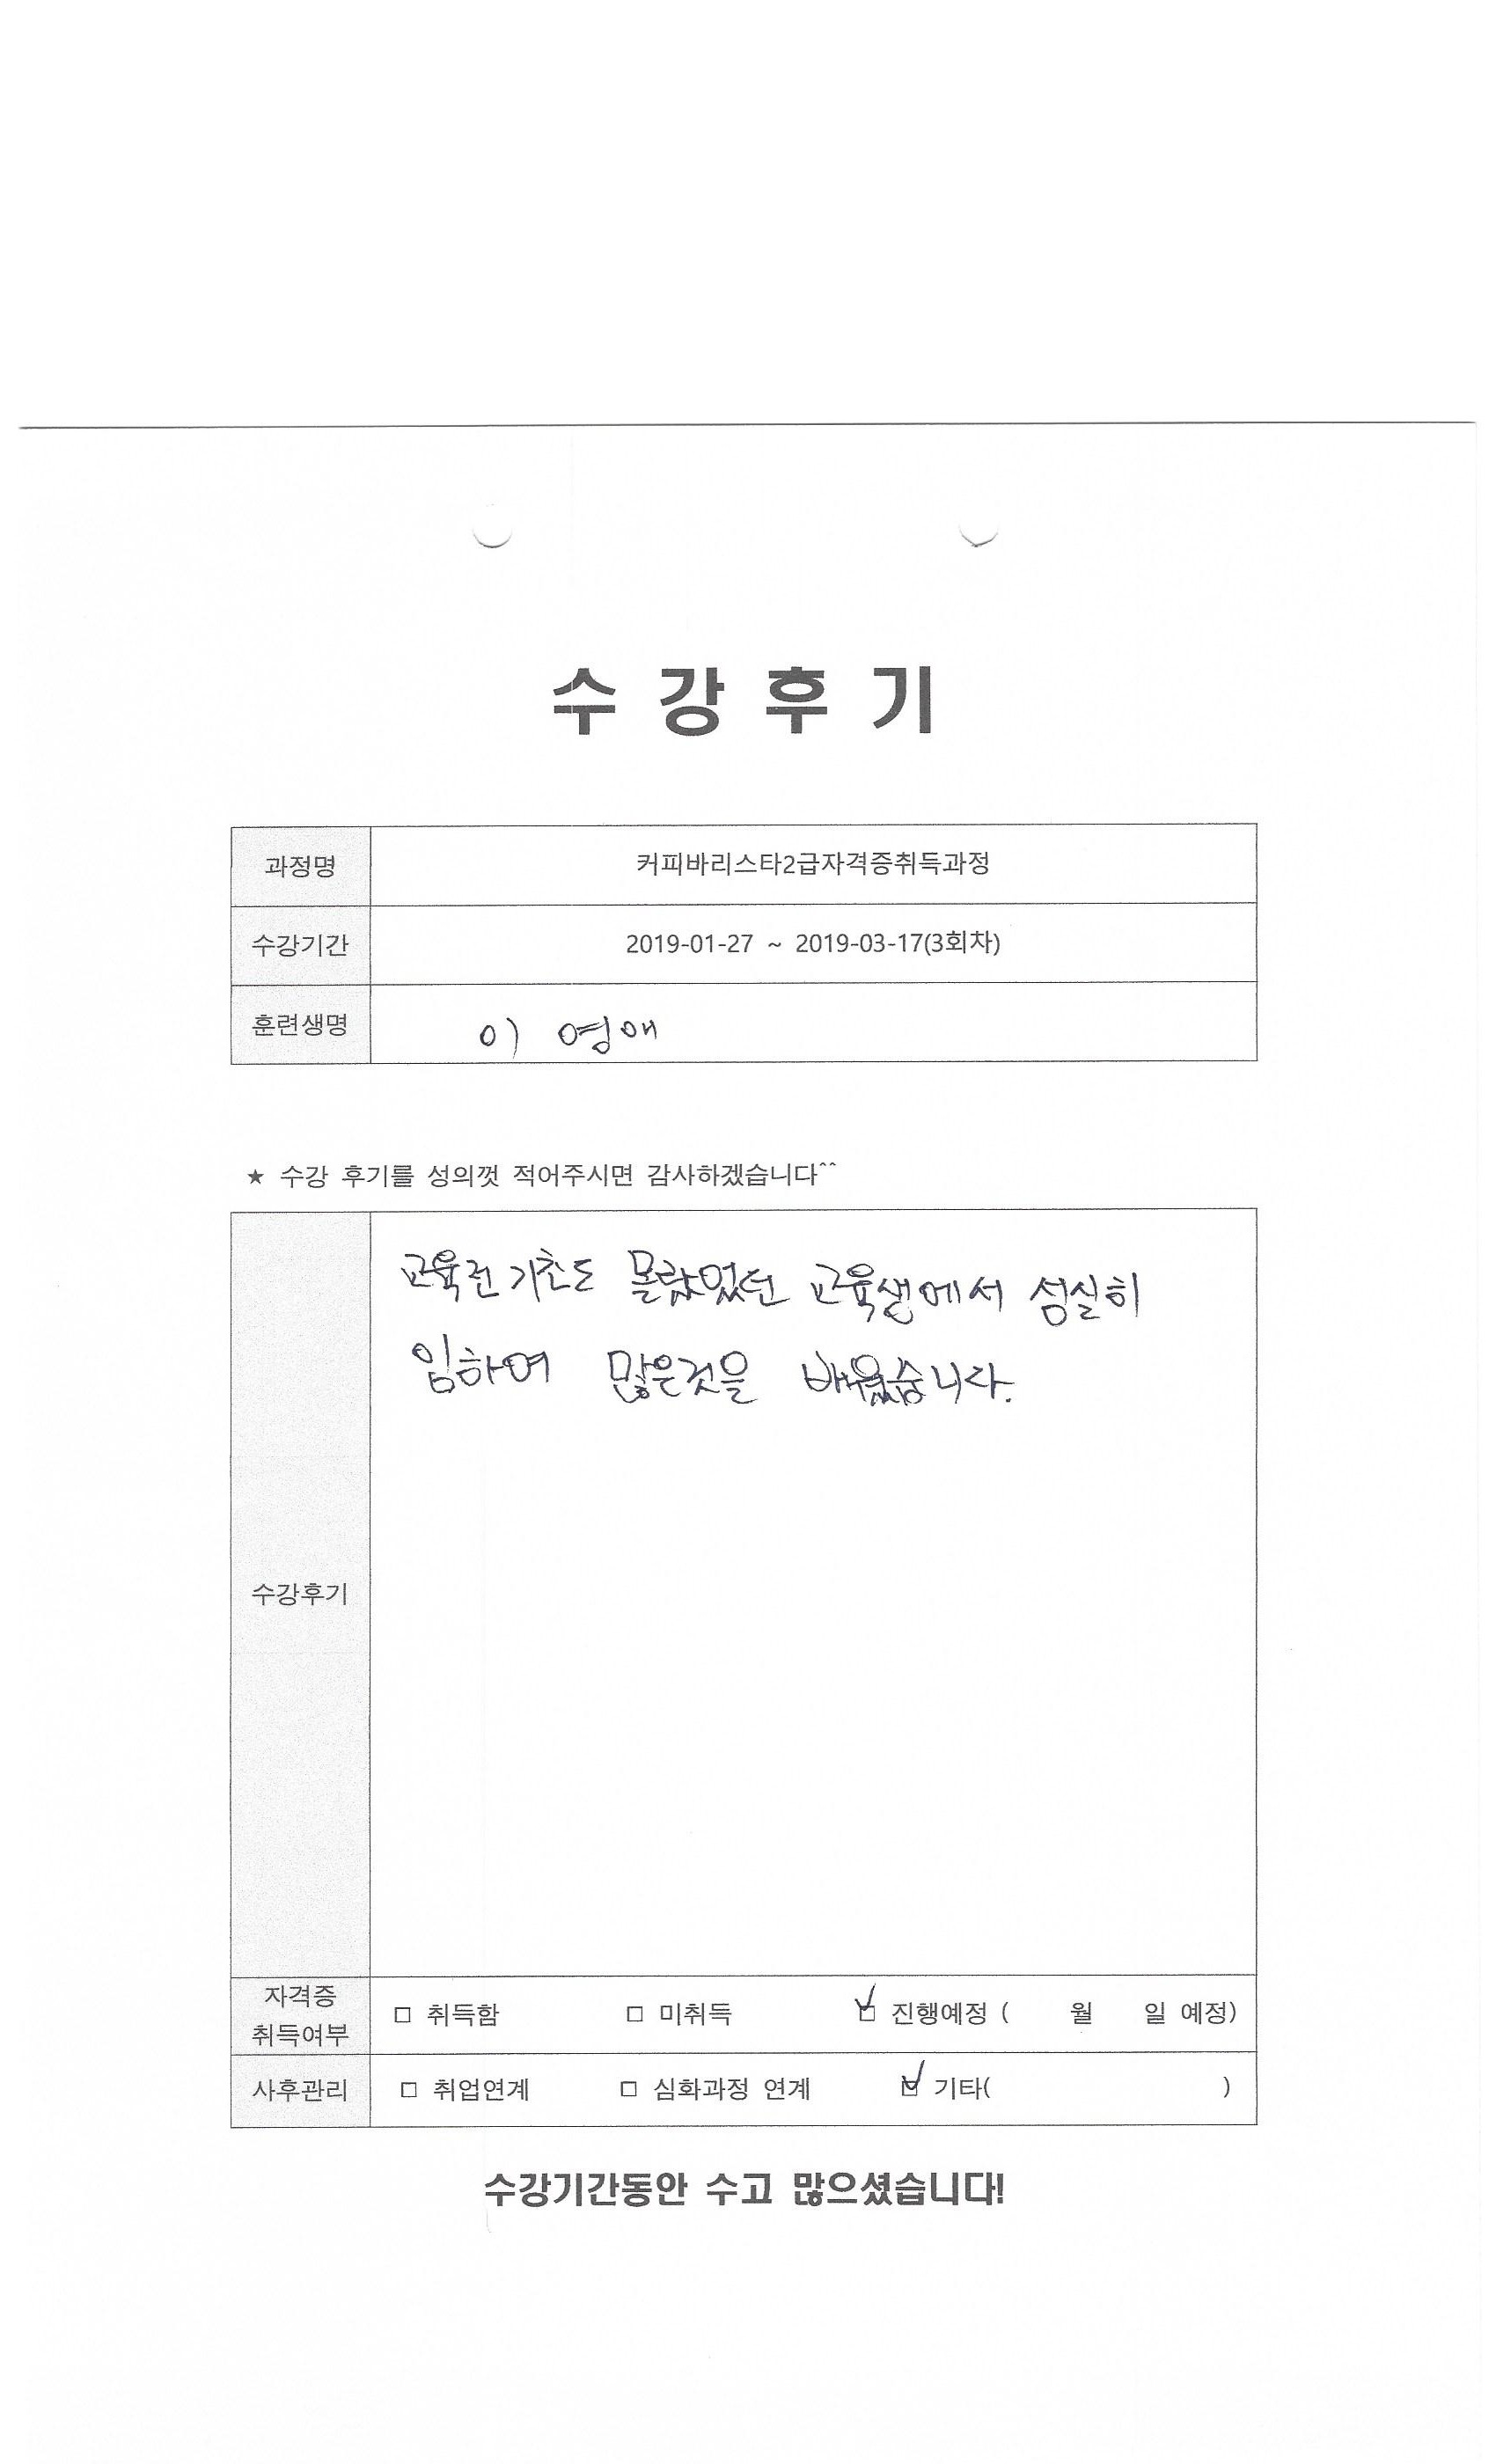 수 강 후 기
과정명 커피바리스타2급자격증취득과정
수강기간 2019-01-27 ~ 2019-03-17(3회차)
훈련생명 이 영애
★ 수강 후기를 성의껏 적어주시면 감사하겠습니다^^
교육전 기초도 몰랐었던 교육생에서 성실히
임하여 많은것을 배웠습니다.
수강후기
자격증
취득여부 □ 취득함 □ 미취득 ☑ 진행예정 ( 월 일 예정)
사후관리 □ 취업연계 □ 심화과정 연계 ☑ 기타( )
수강기간동안 수고 많으셨습니다!